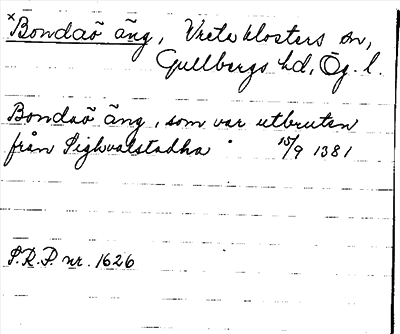 ×Bondaö äng, Vreta klosters sn,
Gullbergs hd, Ög. l.
Bondaö äng, som var utbruten
från Sighvalstadha 15/9 1381
S.R.P. nr. 1626